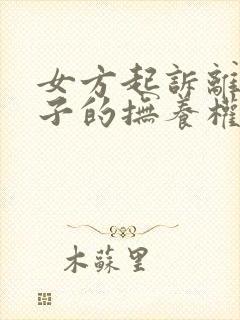 女方起訴離
子的撫養權
木蘇里